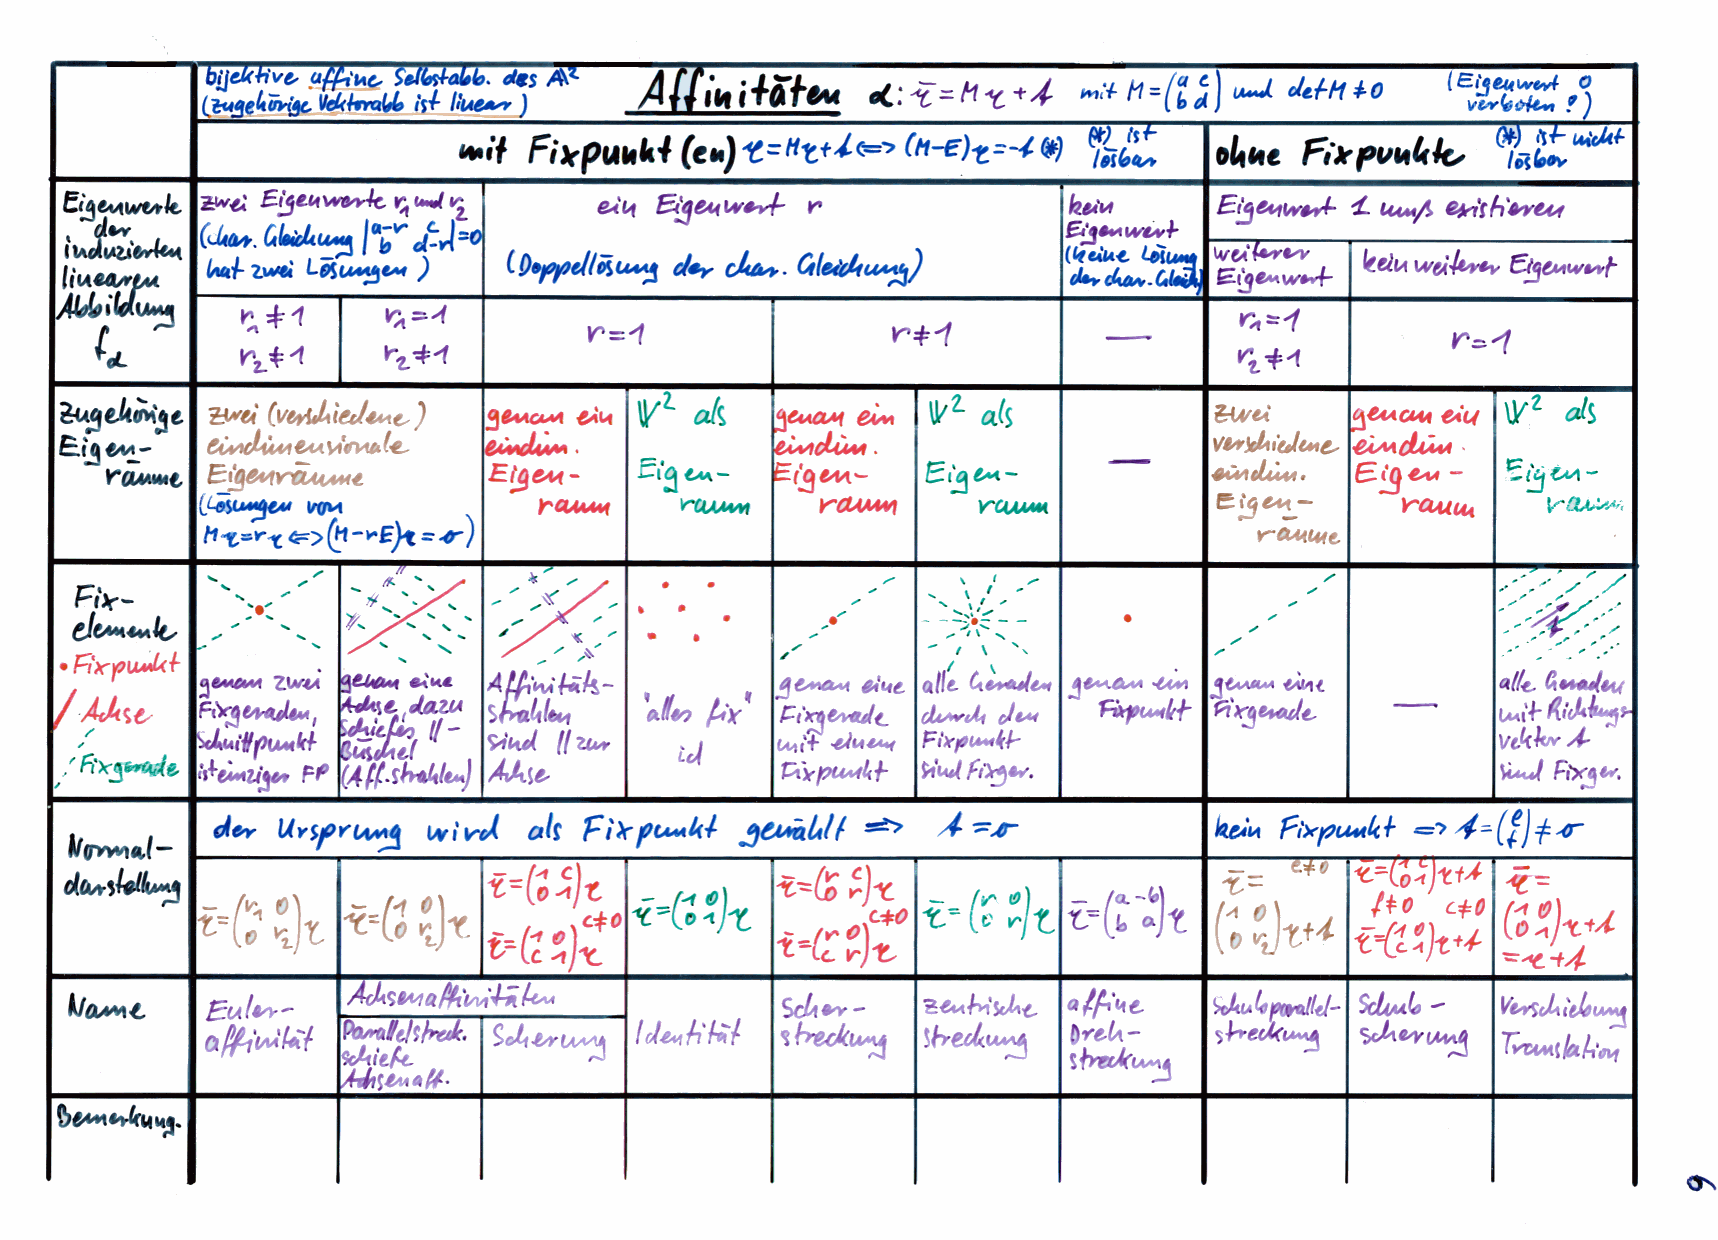 bijektive affine Selbstabb. des A²
(zugehörige Vektorabb ist linear)
Affinitäten α: x̄ = Mx + t mit M = (a c / b d) und det M ≠ 0
(Eigenwert 0 verboten!)
mit Fixpunkt(en) x = Mx + t ⟺ (M-E)x = -t (*)
(*) ist lösbar
ohne Fixpunkte
(*) ist nicht lösbar
Eigenwerte
der
induzierten
linearen
Abbildung
f_α
zwei Eigenwerte r₁ und r₂
(char. Gleichung |a-r c / b d-r| = 0
hat zwei Lösungen)
ein Eigenwert r
(Doppellösung der char. Gleichung)
kein
Eigenwert
(keine Lösung
der char. Gleich)
Eigenwert 1 muß existieren
weiterer
Eigenwert
kein weiterer Eigenwert
r₁ ≠ 1
r₂ ≠ 1
r₁ = 1
r₂ ≠ 1
r = 1
r ≠ 1
—
r₁ = 1
r₂ ≠ 1
r = 1
zugehörige
Eigen-
räume
zwei (verschiedene)
eindimensionale
Eigenräume
(Lösungen von
Mx = rx ⟺ (M-rE)x = o)
genau ein
eindim.
Eigen-
raum
V² als
Eigen-
raum
genau ein
eindim.
Eigen-
raum
V² als
Eigen-
raum
—
zwei
verschiedene
eindim.
Eigen-
räume
genau ein
eindim.
Eigen-
raum
V² als
Eigen-
raum
Fix-
elemente
• Fixpunkt
/ Achse
Fixgerade
genau zwei
Fixgeraden,
Schnittpunkt
ist einziger FP
genau eine
Achse, dazu
schiefes ||-
Büschel
(Aff.strahlen)
Affinitäts-
strahlen
sind || zur
Achse
"alles fix"
id
genau eine
Fixgerade
mit einem
Fixpunkt
alle Geraden
durch den
Fixpunkt
sind Fixger.
genau ein
Fixpunkt
genau eine
Fixgerade
—
t
alle Geraden
mit Richtungs-
vektor t
sind Fixger.
Normal-
darstellung
der Ursprung wird als Fixpunkt gewählt ⟹ t = o
kein Fixpunkt ⟹ t = (e / f) ≠ o
x̄ = (r₁ 0 / 0 r₂) x
x̄ = (1 0 / 0 r₂) x
x̄ = (1 c / 0 1) x
c ≠ 0
x̄ = (1 0 / c 1) x
x̄ = (1 0 / 0 1) x
x̄ = (r c / 0 r) x
c ≠ 0
x̄ = (r 0 / c r) x
x̄ = (r 0 / 0 r) x
x̄ = (a -b / b a) x
x̄ = e ≠ 0
(1 0 / 0 r₂) x + t
x̄ = (1 c / 0 1) x + t
f ≠ 0 c ≠ 0
x̄ = (1 0 / c 1) x + t
x̄ =
(1 0 / 0 1) x + t
= x + t
Name
Euler-
affinität
Achsenaffinitäten
Parallelstreck.
schiefe
Achsenaff.
Scherung
Identität
Scher-
streckung
zentrische
Streckung
affine
Dreh-
streckung
Schubparallel-
streckung
Schub-
scherung
Verschiebung
Translation
Bemerkung.
9